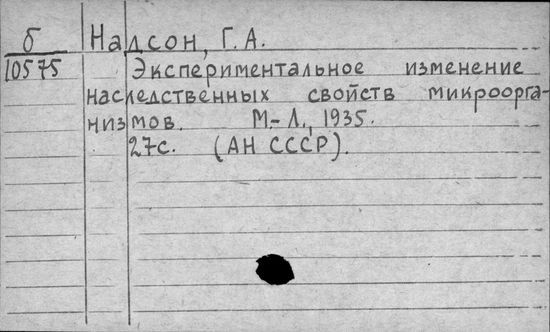 б Надсон, Г. А.
10575 Экспериментальное изменение
наследственных свойств микроорга-
низмов. М.-Л., 1935.
27с. (АН СССР).